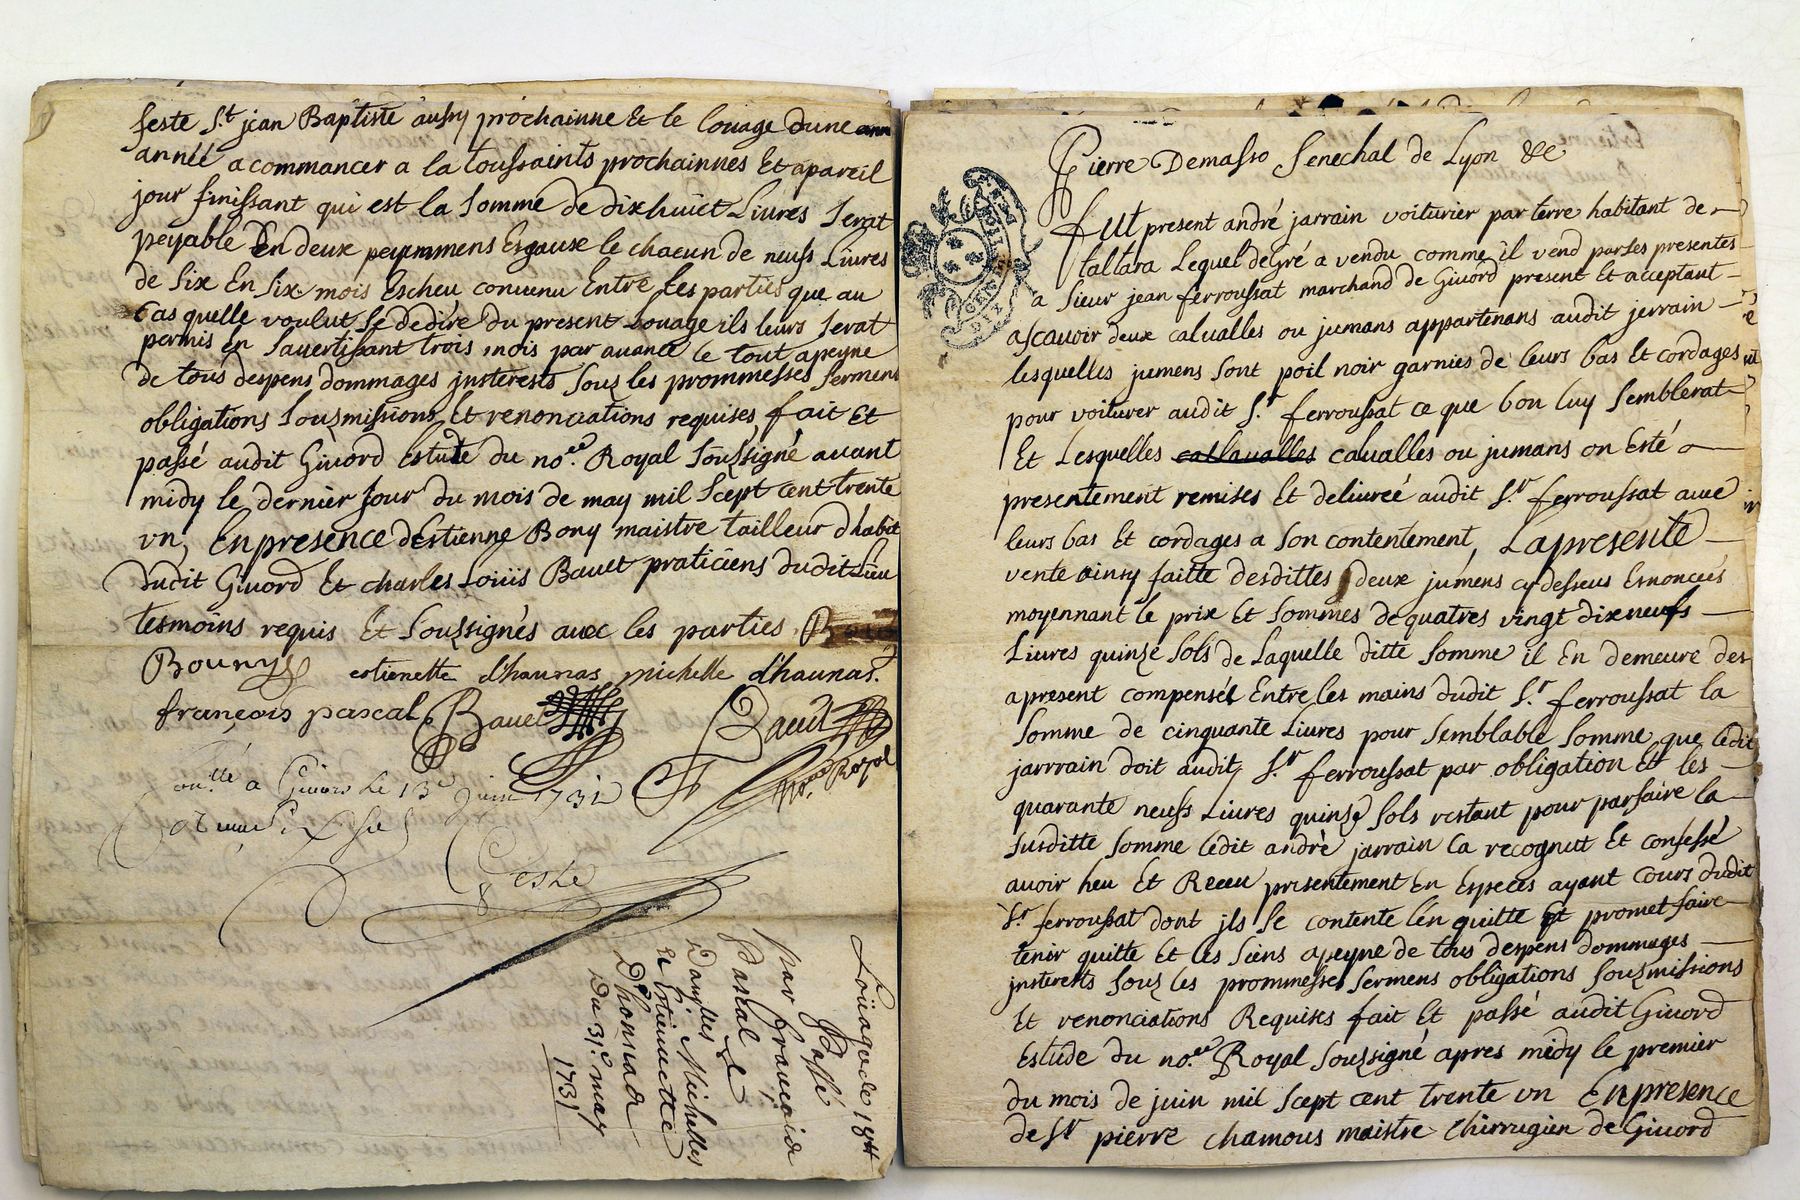 feste S.t jean Baptiste aussy prochainne Et le louage dune ann
année a commancer a la toussaints prochainnes Et apareil
jour finissant qui est la somme de dixhuict Livres Serat
peyable En deux peyemmens Esgaux le chacun de neufs Livres
de Six En Six mois Escheu convenu Entre Les parties que au
Cas quelle voulut Se dedire du present Louage ils leurs Serat
permis en Savertissant trois mois par avance le tout apeyne
de tous despens dommages jnsterests Sous les prommesses Sermens
obligations Sousmissions Et renonciations requises, fait Et
passé audit Givord Estude du no.re Royal Soussigné avant
midy le dernier Jour du mois de may mil Scept cent trente
vn, En presence dEstienne Bony maistre tailleur dhabit
dudit Givord Et charles Loüis Bavet praticiens dudit Lieu
tesmoins requis Et Soussignés avec les parties
Bouny estienette d'haunas michelle d'haunas.
françois pascal Bavet Bavet
no.re Royal
a Givors Le 13e Juin 1731
Louage de 18tt
Passé
par françois
Pascal
Michelles
et Estiennette
Dhonnas
Du 31e may
1731
Pierre Demasso Senechal de Lyon &c
fut present andré jarrain voiturier par terre habitant de
taltara Lequel degré a vendu comme il vend par ses presentes
a Sieur jean ferroussat marchand de Givord present Et acceptant
ascavoir deux calvalles ou jumans appartenans audit jerrain
lesquelles jumens sont poil noir garnies de leurs bas Et cordages
pour voiturer audit S.r ferroussat ce que bon luy Semblerat
Et Lesquelles callavalles calvalles ou jumans on Esté
presentement remises Et delivreé audit S.r ferroussat avec
leurs bas Et cordages a Son contentement, La presente
vente ainsy faitte desdittes deux jumens cy dessus Esnoncees
moyennant le prix Et Sommes de quatres vingt dix neufs
Livres quinze Sols de Laquelle ditte Somme il En demeure des
apresent compensés Entre les mains dudit S.r ferroussat la
Somme de cinquante Livres pour Semblable Somme que ledit
jarrrain doit audit S.r ferroussat par obligation Et les
quarante neufs Livres quinze Sols restant pour parfaire la
Susditte Somme ledit andrè jarrain la recognut Et confessé
avoir heu Et Receu presentement En Especes ayant Cours dudit
S.r ferroussat dont jls Se contente l'en quitte Et promet faire
tenir quitte Et les Siens apeyne de tous despens dommages
jnsterests Sous les prommesses Sermens obligations Sousmissions
Et renonciations Requises fait Et passé audit Givord
Estude du no.re Royal Soussigné apres midy le premier
du mois de juin mil Scept cent trente vn En presence
de Sr pierre chamous maistre Chirrugien de Givord